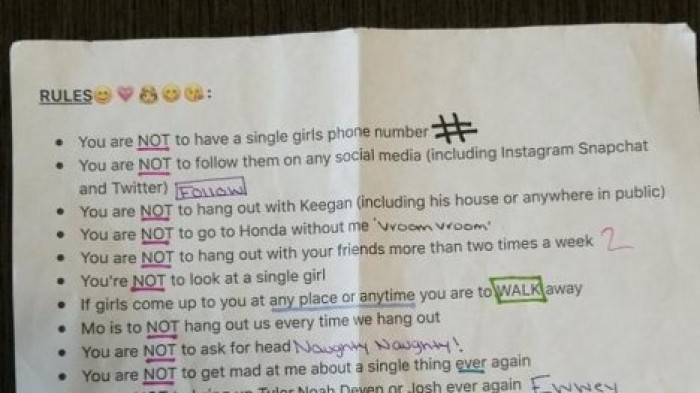 RULES😊💗👸😊😘:
• You are NOT to have a single girls phone number #
• You are NOT to follow them on any social media (including Instagram Snapchat
and Twitter) Follow
• You are NOT to hang out with Keegan (including his house or anywhere in public)
• You are NOT to go to Honda without me 'Vroom vroom'
• You are NOT to hang out with your friends more than two times a week 2
• You're NOT to look at a single girl
• If girls come up to you at any place or anytime you are to WALK away
• Mo is to NOT hang out us every time we hang out
• You are NOT to ask for head Naughty Naughty!
• You are NOT to get mad at me about a single thing ever again
Tyler Noah Deven or Josh ever again Ewwey